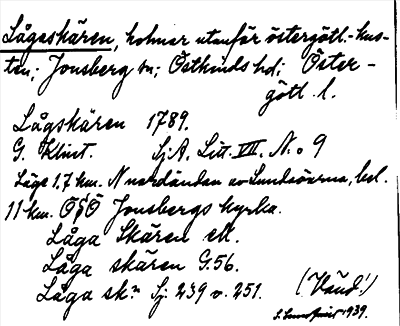 Lågaskären, holmar utanför östergötl.-kus-
ten; Jonsberg sn; Östkinds hd; Öster-
götl. l.
Lågskären 1789.
G. Klint. Sj.A. Litt. VIII. N:o 9
Läge 1,7 km. N nordändan av Lundaöarna, bel.
11 km. OSO Jonsbergs kyrka.
Låga Skären ek.
Låga skären G.56.
Låga skn Sj. 239 o. 251. (Vänd!)
1939.